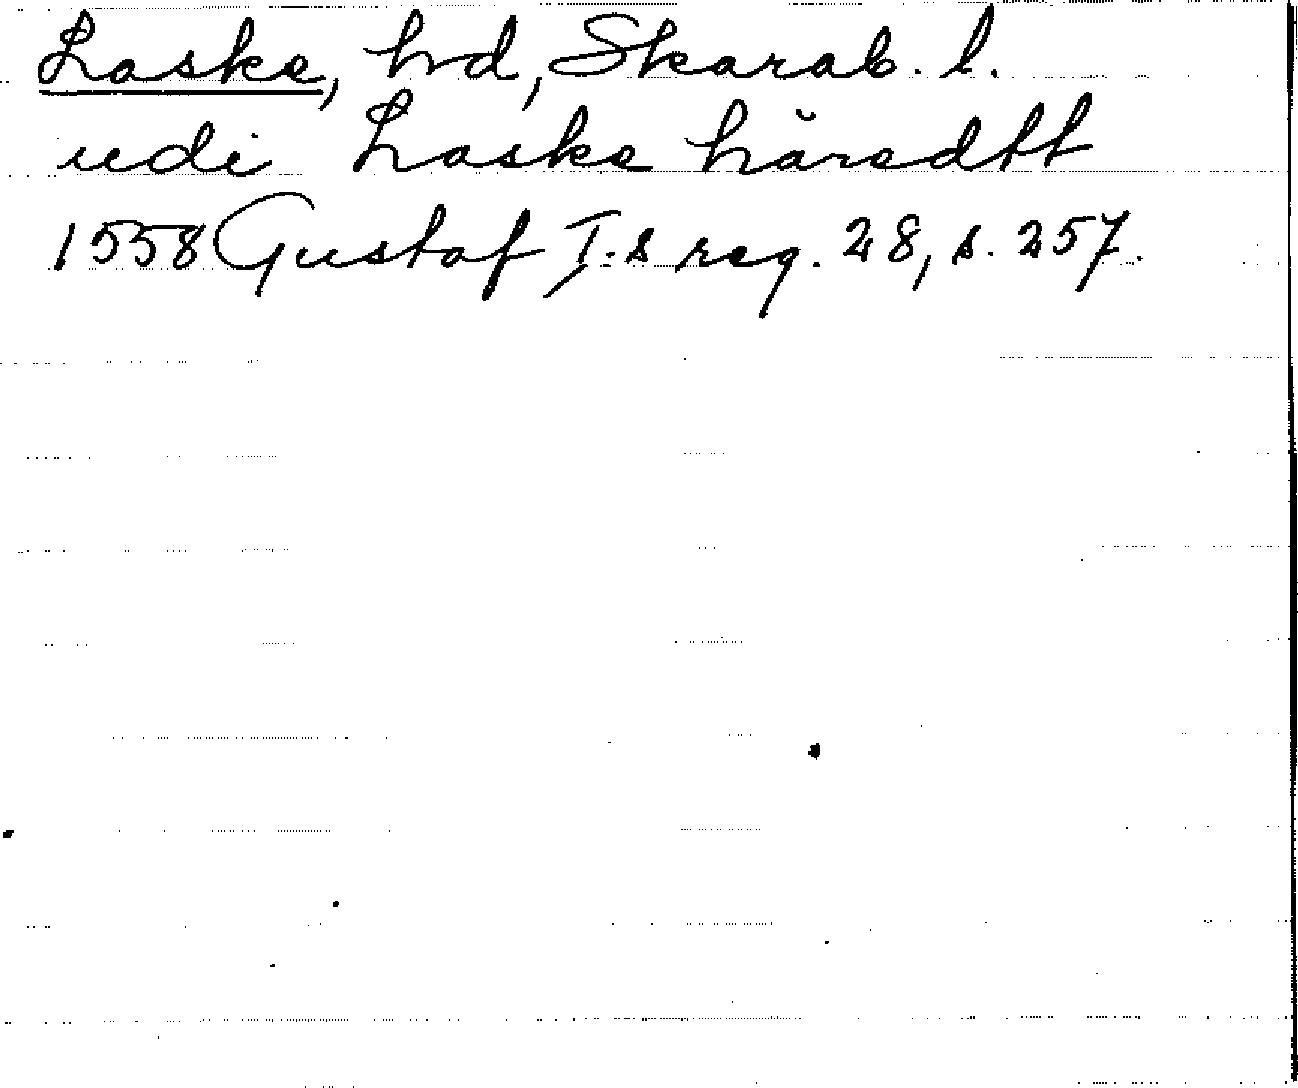 Laske, hd, Skarab. l.
udi Laske håredtt
1558 Gustaf I.s reg. 28, s. 257.